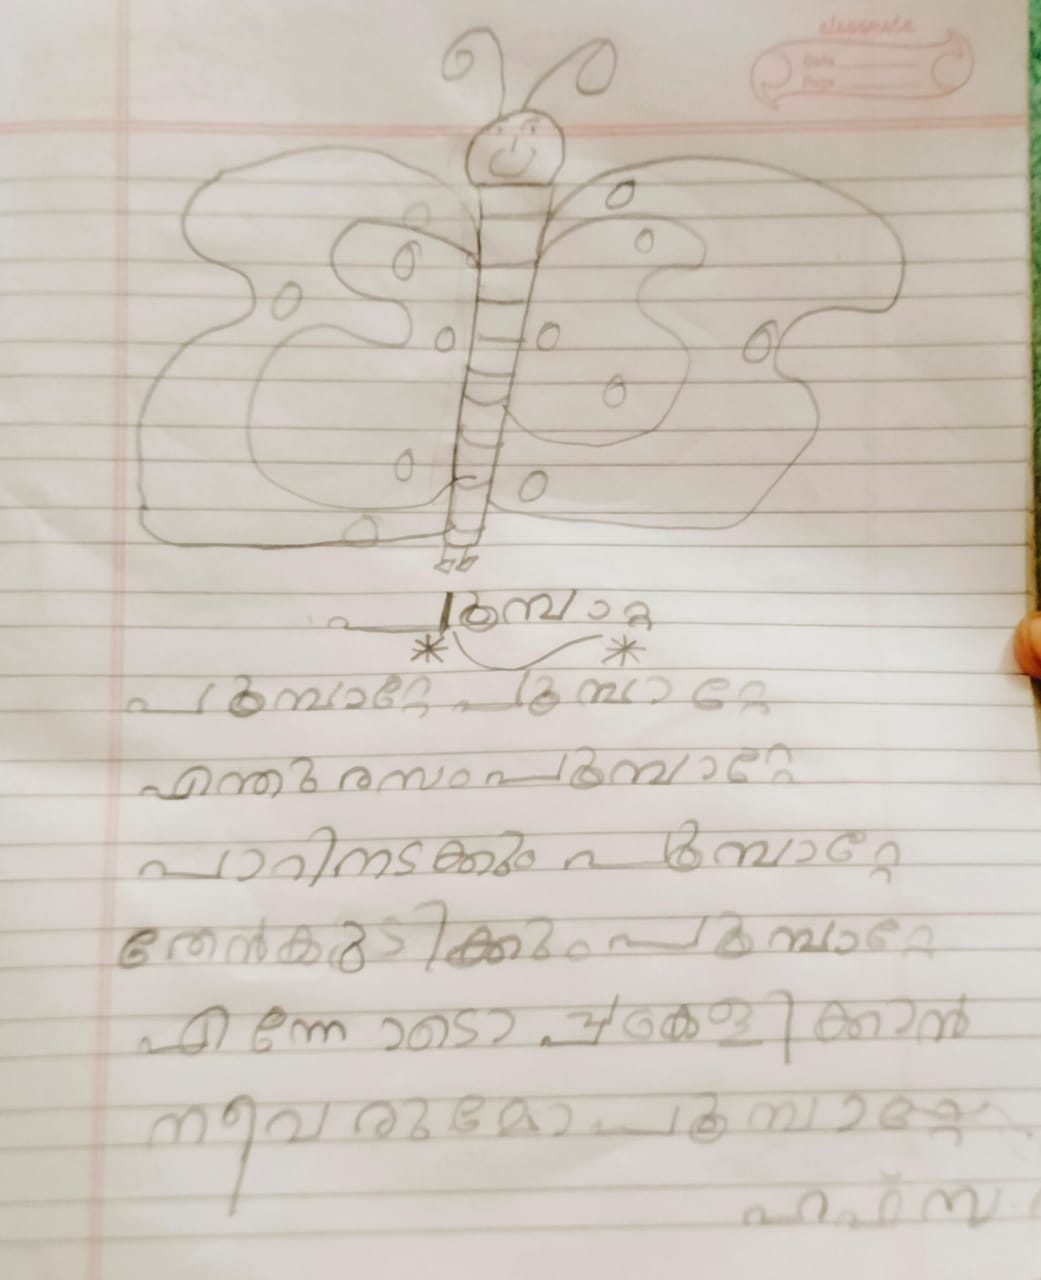 classmate
Date
Page
പൂമ്പാറ്റ
പൂമ്പാറ്റേ പൂമ്പാറ്റേ
എന്തു രസം പൂമ്പാറ്റേ
പാറിനടക്കും പൂമ്പാറ്റേ
തേൻകുടിക്കും പൂമ്പാറ്റേ
എന്നോടൊപ്പം കളിക്കാൻ
നീ വരുമോ പൂമ്പാറ്റേ